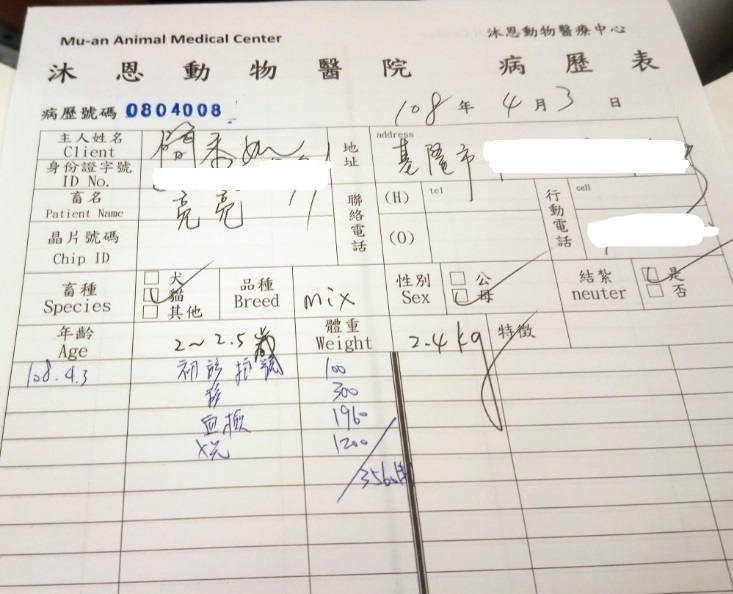 Mu-an Animal Medical Center 沐恩動物醫療中心
沐恩動物醫院 病歷表
病歷號碼 0804008 108年4月3日
主人姓名 Client
身份證字號 ID No.
地址 address 基隆市
畜名 Patient Name 亮亮
晶片號碼 Chip ID
聯絡電話 (H) tel
(O)
行動電話 cell
畜種 Species 犬 貓 其他
品種 Breed mix
性別 Sex 公 母
結紮 neuter 是 否
年齡 Age 2~2.5歲
體重 Weight 2.4kg
特徵
108.4.3 初診掛號 100
300
血檢 1960
X光 1200
3560